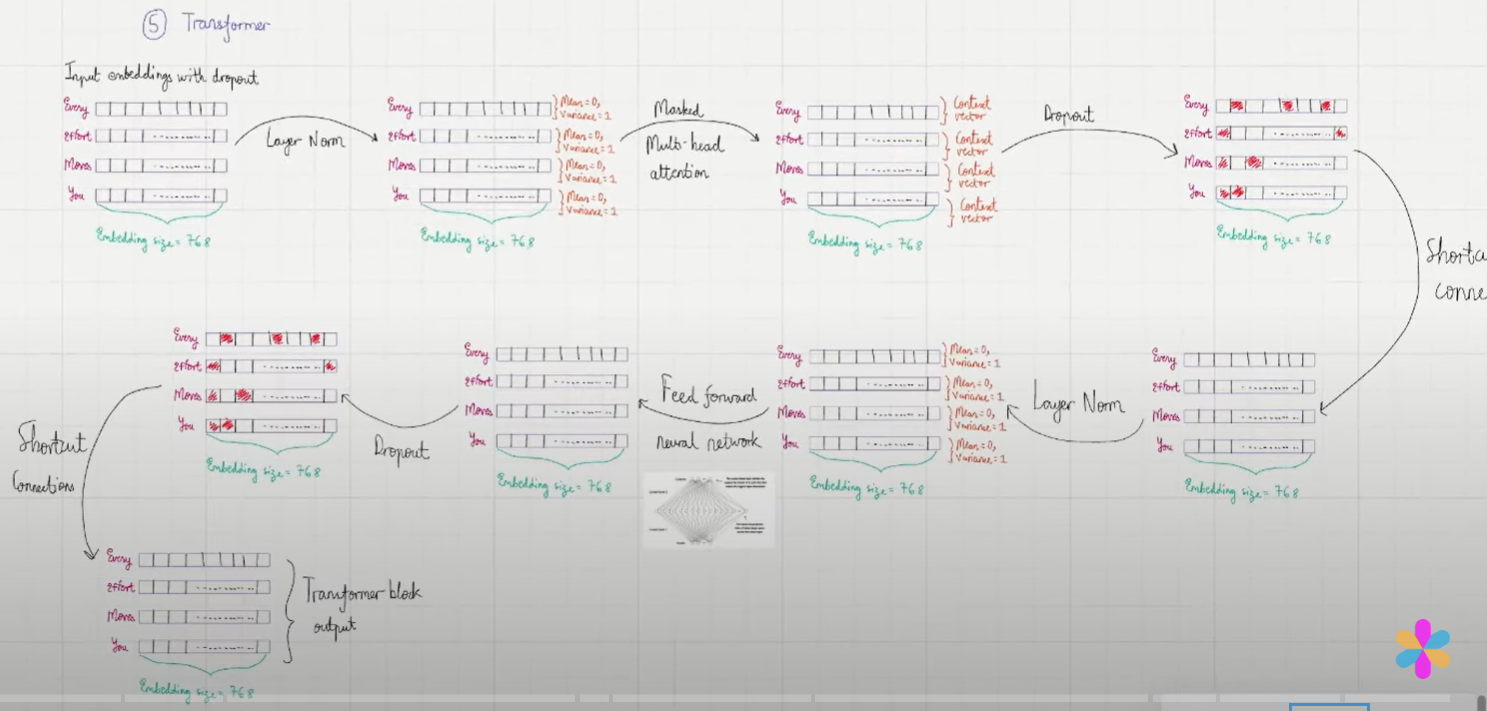 5 Transformer
Input embeddings with dropout
Every
Effort
Moves
You
Embedding size = 768
Layer Norm
Every
Effort
Moves
You
Mean = 0,
Variance = 1
Mean = 0,
Variance = 1
Mean = 0,
Variance = 1
Mean = 0,
Variance = 1
Embedding size = 768
Masked
Multi-head
attention
Every
Effort
Moves
You
Context
vector
Context
vector
Context
vector
Context
vector
Embedding size = 768
Dropout
Every
Effort
Moves
You
Embedding size = 768
Shortc
conne
Every
Effort
Moves
You
Embedding size = 768
Layer Norm
Every
Effort
Moves
You
Mean = 0,
Variance = 1
Mean = 0,
Variance = 1
Mean = 0,
Variance = 1
Mean = 0,
Variance = 1
Embedding size = 768
Feed forward
neural network
Every
Effort
Moves
You
Embedding size = 768
Dropout
Every
Effort
Moves
You
Embedding size = 768
Shortcut
Connections
Every
Effort
Moves
You
Embedding size = 768
Transformer block
output